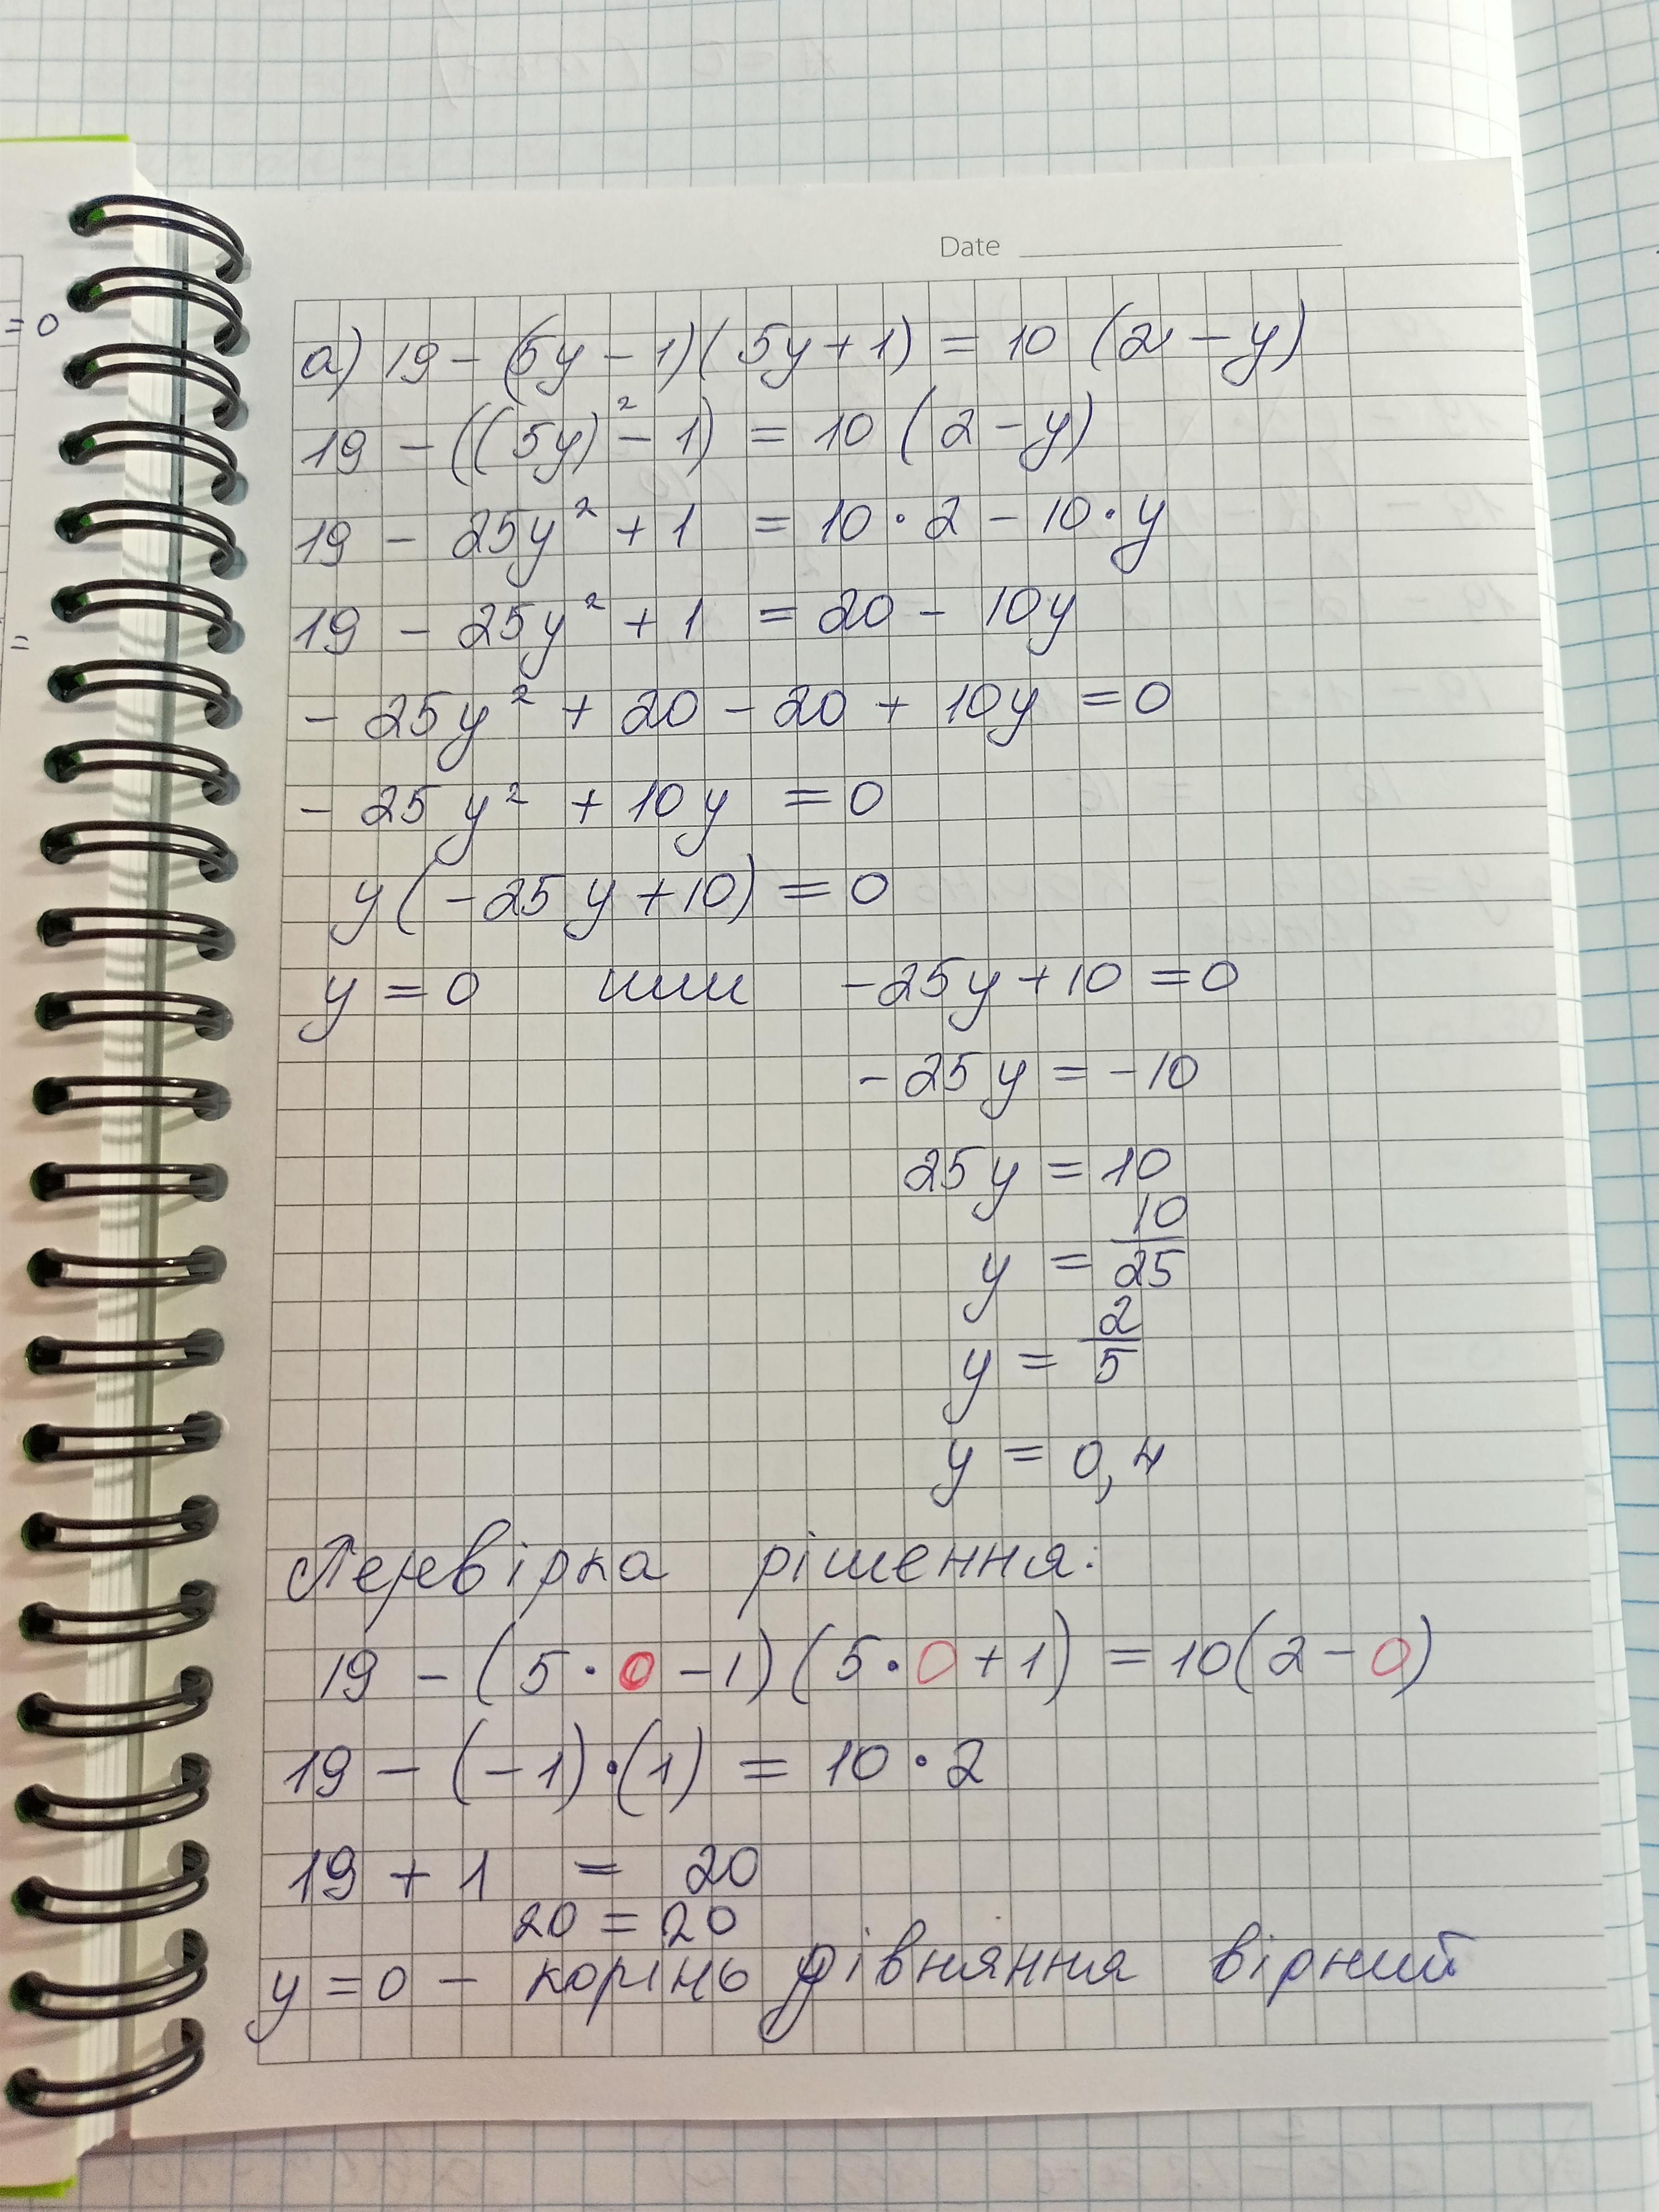 Date
= 0
=
а) 19 - (5y - 1)(5y + 1) = 10 (2 - y)
19 - ((5y)² - 1) = 10 (2 - y)
19 - 25y² + 1 = 10 · 2 - 10 · y
19 - 25y² + 1 = 20 - 10y
- 25y² + 20 - 20 + 10y = 0
- 25y² + 10y = 0
y(-25y + 10) = 0
y = 0 или -25y + 10 = 0
-25y = -10
25y = 10
y = 10/25
y = 2/5
y = 0,4
Перевірка рішення:
19 - (5 · 0 - 1)(5 · 0 + 1) = 10(2 - 0)
19 - (-1) · (1) = 10 · 2
19 + 1 = 20
20 = 20
y = 0 - корінь рівняння вірний